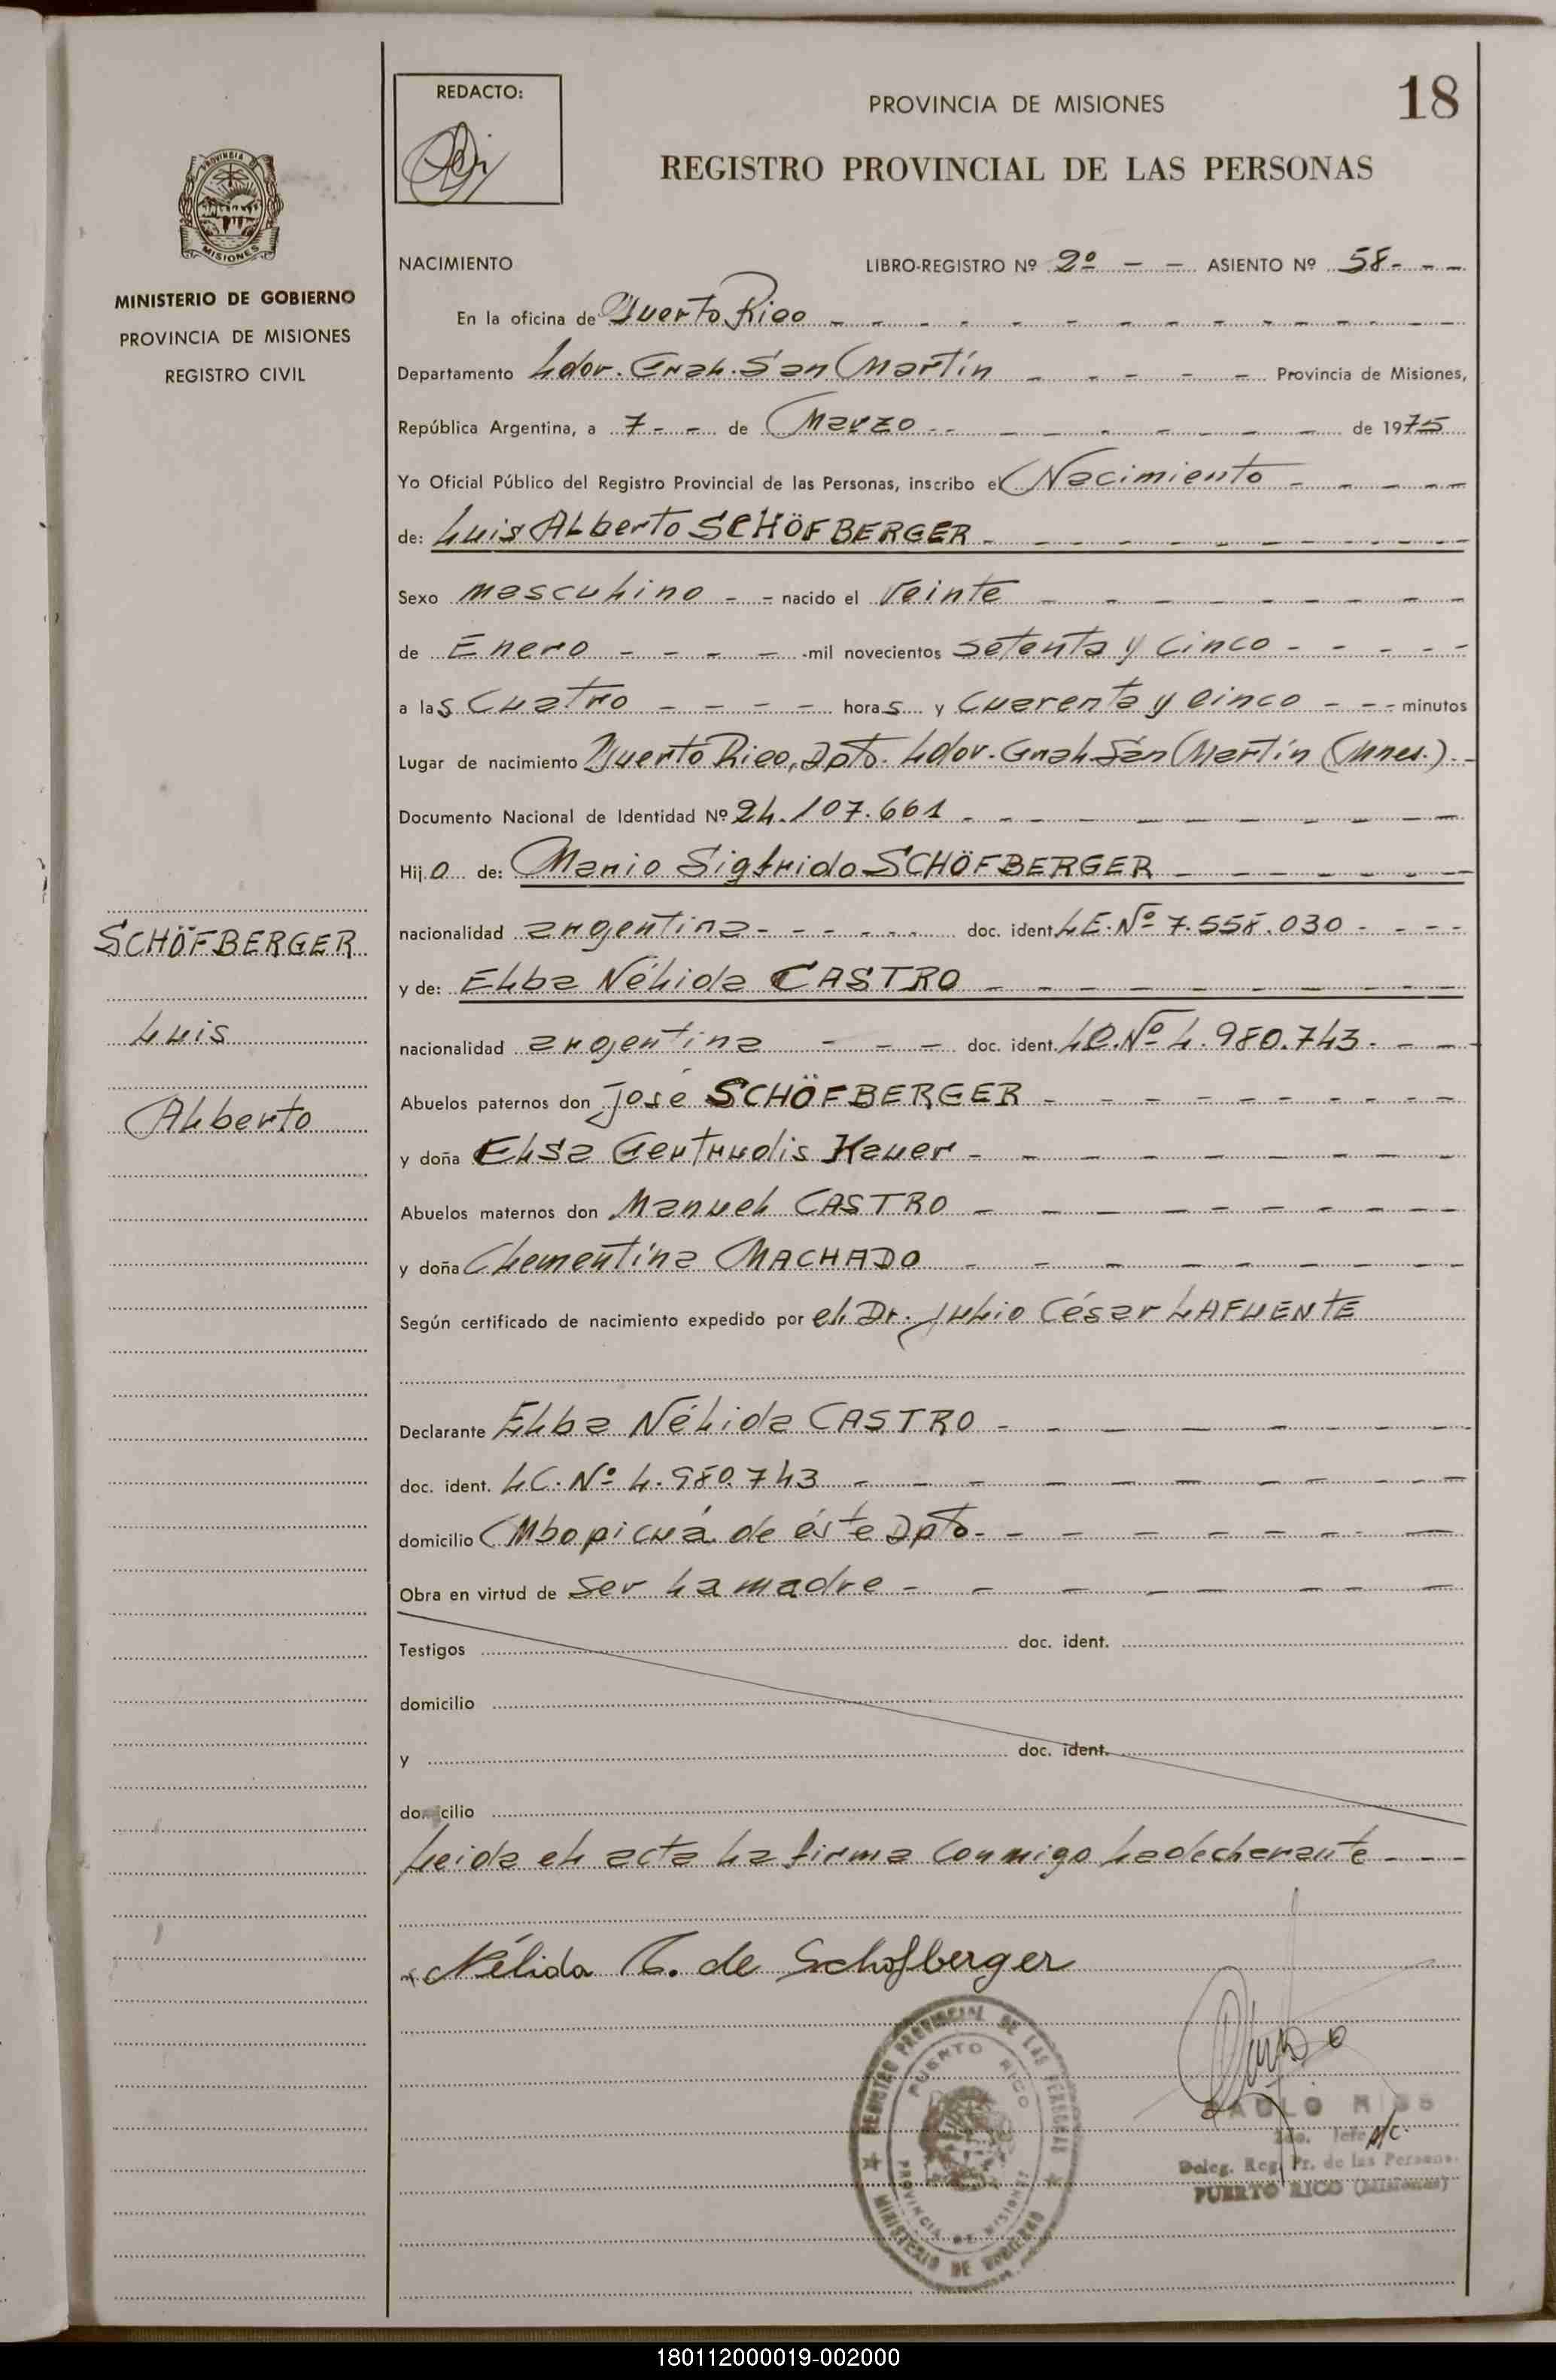 REDACTO:
PROVINCIA DE MISIONES
18
REGISTRO PROVINCIAL DE LAS PERSONAS
PROVINCIA
MISIONES
MINISTERIO DE GOBIERNO
PROVINCIA DE MISIONES
REGISTRO CIVIL
NACIMIENTO LIBRO-REGISTRO Nº 2º - - ASIENTO Nº 58 - - -
En la oficina de Puerto Rico
Departamento Ldor. Gral. San Martín Provincia de Misiones,
República Argentina, a 7 - - de Marzo de 1975
Yo Oficial Público del Registro Provincial de las Personas, inscribo el Nacimiento
de: Luis Alberto SCHÖFBERGER
Sexo masculino - - nacido el Veinte
de Enero - - - - mil novecientos setenta y cinco
a las Cuatro - - - - horas y cuarenta y cinco - - - minutos
Lugar de nacimiento Puerto Rico, Dpto. Ldor. Gral. San Martín (Mnes.).
Documento Nacional de Identidad Nº 24.107.661
Hijo de: Mario Sigfrido SCHÖFBERGER
nacionalidad argentina doc. ident. L.E. Nº 7.558.030
y de: Elba Nélida CASTRO
nacionalidad argentina doc. ident. L.C. Nº 4.980.743
Abuelos paternos don José SCHÖFBERGER
y doña Elsa Gertrudis Kauer
Abuelos maternos don Manuel CASTRO
y doña Clementina MACHADO
Según certificado de nacimiento expedido por el Dr. Julio César LAFUENTE
Declarante Elba Nélida CASTRO
doc. ident. L.C. Nº 4.980.743
domicilio Mbopicuá de éste Dpto.
Obra en virtud de ser la madre
Testigos doc. ident.
domicilio
y doc. ident.
domicilio
Leida el acta la firma conmigo la declarante
SCHÖFBERGER
Luis
Alberto
Nélida C. de Schofberger
REGISTRO PROVINCIAL DE LAS PERSONAS
PUERTO RICO
PROVINCIA DE MISIONES
MINISTERIO DE GOBIERNO
Jefe a/c.
Deleg. Reg. Pr. de las Persons.
PUERTO RICO (Misiones)
180112000019-002000